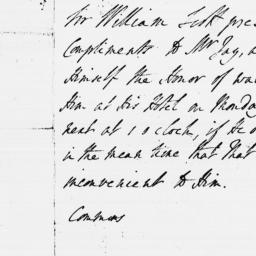 Sir William Scott pres
Compliments to Mr Jay, a
Himself the Honor of wai
Him at His Hotel on Monday
next at 1 o clock, if He d
in the mean time that that
inconvenient to Him.
Commons